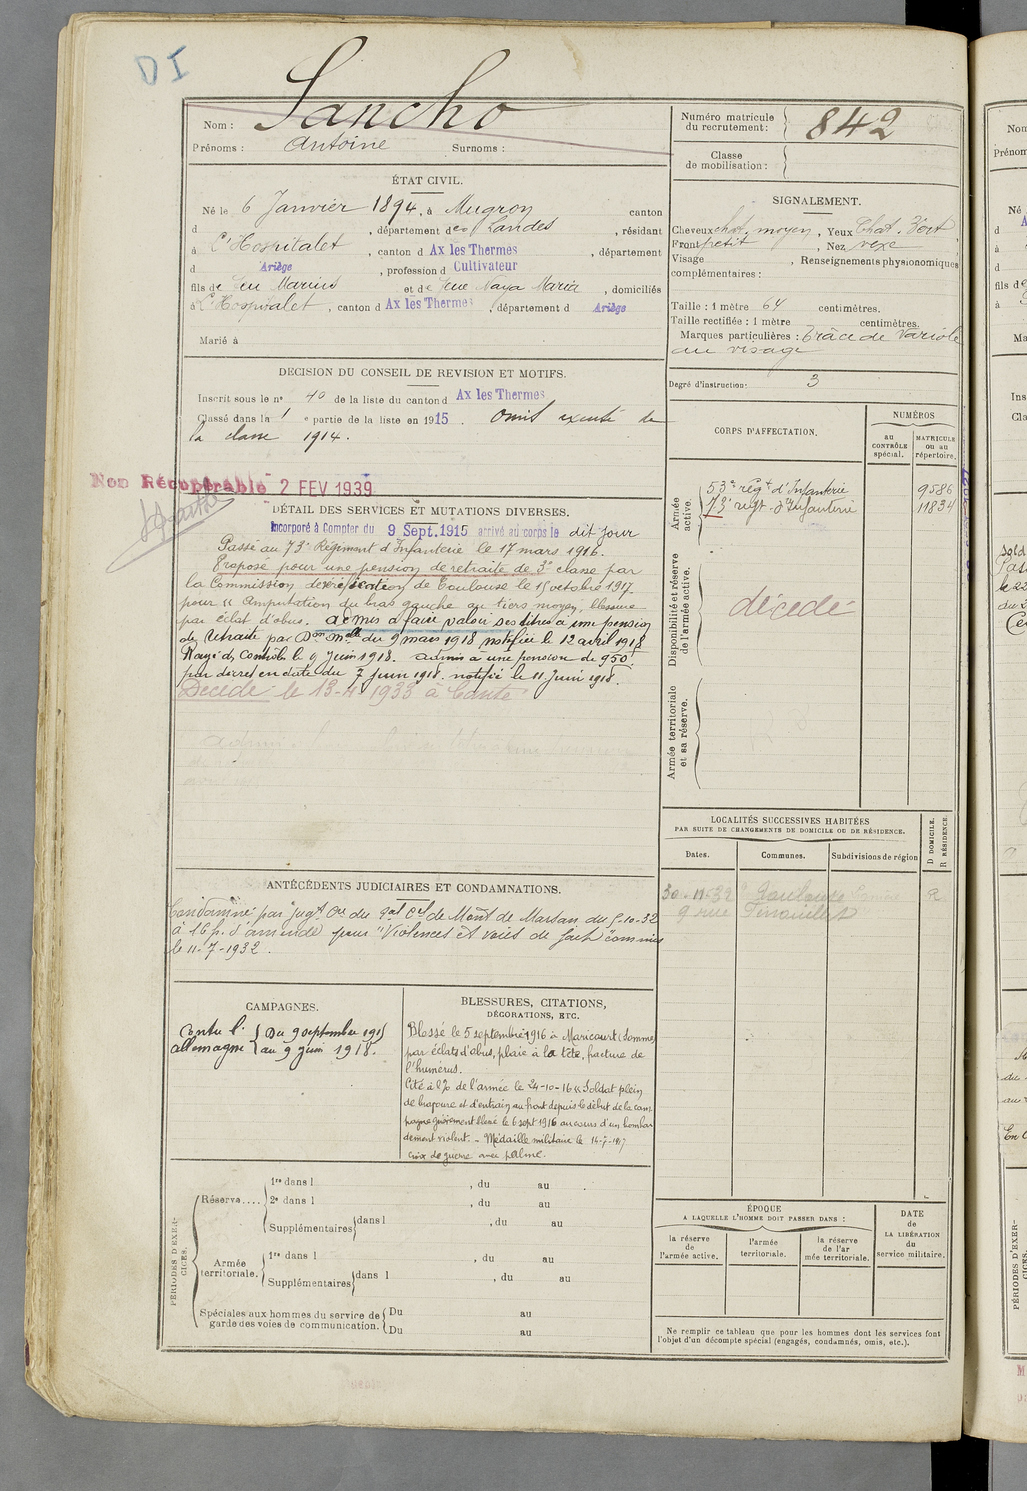 DI
Nom : Sancho
Prénoms : Antoine Surnoms :
Numéro matricule du recrutement : 842
Classe de mobilisation :
ÉTAT CIVIL.
Né le 6 Janvier 1894, à Mugron canton
d , département des Landes , résidant
à L'Hospitalet , canton d Ax les Thermes , département
d Ariège , profession d Cultivateur
fils de feu Marius et de feue Naya Maria , domiciliés
à L'Hospitalet , canton d Ax les Thermes , département d Ariège
Marié à
SIGNALEMENT.
Cheveux chat. moyen , Yeux Chat. Vert
Front petit , Nez vexe
Visage , Renseignements physionomiques
complémentaires :
Taille : 1 mètre 64 centimètres.
Taille rectifiée : 1 mètre centimètres.
Marques particulières : Trâce de Variole
au visage
Degré d'instruction : 3
DECISION DU CONSEIL DE REVISION ET MOTIFS.
Inscrit sous le n° 40 de la liste du canton d Ax les Thermes
Classé dans la 1 e partie de la liste en 1915. Omis excusé de
la classe 1914.
Non Récupérable 2 FEV 1939
DÉTAIL DES SERVICES ET MUTATIONS DIVERSES.
Incorporé à Compter du 9 Sept. 1915 arrivé au corps le dit jour
Passé au 73e Régiment d'Infanterie le 17 mars 1916.
Proposé pour une pension de retraite de 3e classe par
la Commission de de Toulouse le 15 octobre 1917
pour « Amputation du bras gauche au tiers moyen, blessure
par éclat d'obus. Admis à faire valoir ses titres à une pension
de retraite par Don Melle du 9 mars 1918 notifiée le 12 avril 1918
Rayé des Contrôles le 9 Juin 1918. Admis à une pension de 950f
par décret en date du 7 juin 1918. notifié le 11 Juin 1918.
Décédé le 13-4 1933 à Canté
CORPS D'AFFECTATION.
NUMÉROS
au CONTRÔLE spécial.
MATRICULE ou au répertoire.
Armée active.
53e régt d'Infanterie 9586
73e régt d'Infanterie 11834
Disponibilité et réserve de l'armée active.
décédé
Armée territoriale et sa réserve.
LOCALITÉS SUCCESSIVES HABITÉES
PAR SUITE DE CHANGEMENTS DE DOMICILE OU DE RÉSIDENCE.
D DOMICILE.
R RÉSIDENCE.
Dates. Communes. Subdivisions de région
30-11-32 Toulouse R
9 rue Tinouillet
ANTÉCÉDENTS JUDICIAIRES ET CONDAMNATIONS.
Condamné par Jugt Cre du Bal Cel de Mont de Marsan du 5-10-32
à 16f. d'amende pour "Violences et voies de fait" commises
le 11-7-1932.
CAMPAGNES.
Contre l'Allemagne { Du 9 septembre 1915
au 9 juin 1918.
BLESSURES, CITATIONS,
DÉCORATIONS, ETC.
Blessé le 5 septembre 1916 à Maricourt (Somme)
par éclats d'obus, plaie à la tête, fracture de
l'humérus.
Cité à l'O de l'armée le 24-10-16 « Soldat plein
de bravoure et d'entrain au front depuis le début de la cam
pagne grièvement blessé le 6 sept 1916 au cours d'un bombar
dement violent. - Médaille militaire le 14-7-1917
Croix de guerre avec palme.
PÉRIODES D'EXERCICES.
Réserve....
1re dans l , du au
2e dans l , du au
Supplémentaires { dans l , du au
Armée territoriale.
1re dans l , du au
Supplémentaires { dans l , du au
Spéciales aux hommes du service de garde des voies de communication. { Du au
Du au
ÉPOQUE
A LAQUELLE L'HOMME DOIT PASSER DANS :
la réserve de l'armée active.
l'armée territoriale.
la réserve de l'ar mée territoriale.
DATE de LA LIBÉRATION du service militaire.
Ne remplir ce tableau que pour les hommes dont les services font
l'objet d'un décompte spécial (engagés, condamnés, omis, etc.).